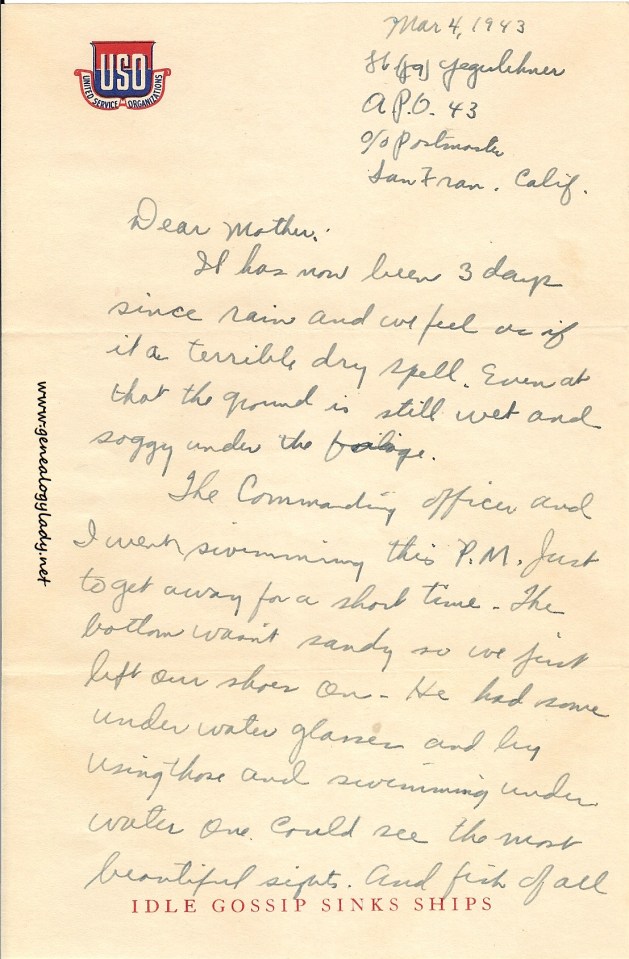 Mar 4, 1943
USO
UNITED SERVICE ORGANIZATIONS
Lt (jg) Yegerlehner
A.P.O. 43
c/o Postmaster
San Fran. Calif.
Dear Mother:
It has now been 3 days
since rain and we feel as if
it a terrible dry spell. Even at
that the ground is still wet and
soggy under the foilage.
The Commanding officer and
I went swimming this P.M. Just
to get away for a short time - The
bottom wasn't sandy so we just
left our shoes on - He had some
under water glasses and by
using those and swimming under
water one could see the most
beautiful sights. And fish of all
IDLE GOSSIP SINKS SHIPS
www.genealogylady.net